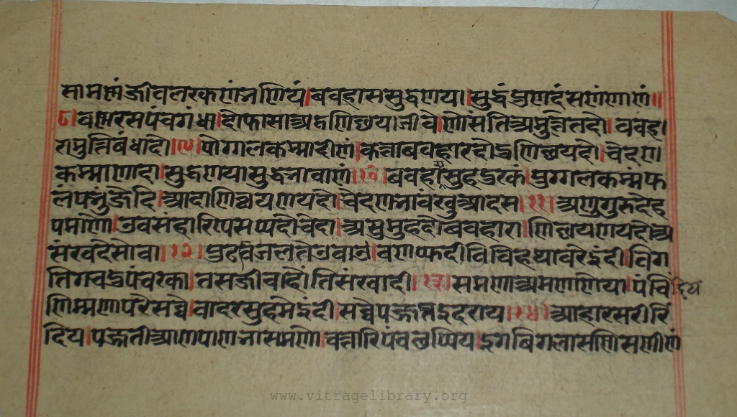 सामणं जीवलरकणं नणियं।ववहारा सुद्धणया।सुद्धं पुणदंसणंणाणं॥
६।वणरसपंचगंधा।दोफासाअट्ठणिच्चयाजीवे।णोसंतिअमुत्तितदो। ववहा
रामुत्तिबंधादो।।७।पोग्गलकम्मादीणं।कत्ताववहारदोदुणिच्चयदो।चेदण
कम्माणादो।सुद्धणयासुद्धभावाणं।।८। ववहारासुहदुरकं।पुग्गलकम्मफ
लंपभुंजेदि।आदाणिच्चयणयदो।चेदणभावंखुआदस।।९।अणुगुरुदेह
पमाणो।उवसंहारप्पिसप्पदोचेदा।असमुहदोववहारा।णिच्चयणयदोअ
संखदेसोवा।१०। पुढविजलतेउवाउ।वणप्फदीविविहथावरेइंदी।विग
तिगचदुपंचरका।तसजीवाहोंतिसंखादी।११।समणाअमणाणेया।पंचिंदिय
णिम्मणापरेसव्वे।वादरसुहमेइंदी।सव्वेपज्जत्तइदराय।१२।आहारसरीरिं
दिय।पज्जत्तीआणपाणभासमणो।चत्तारिपंचछप्पिय।इगविगलासण्णिसण्णीणं
www.vitragelibrary.org